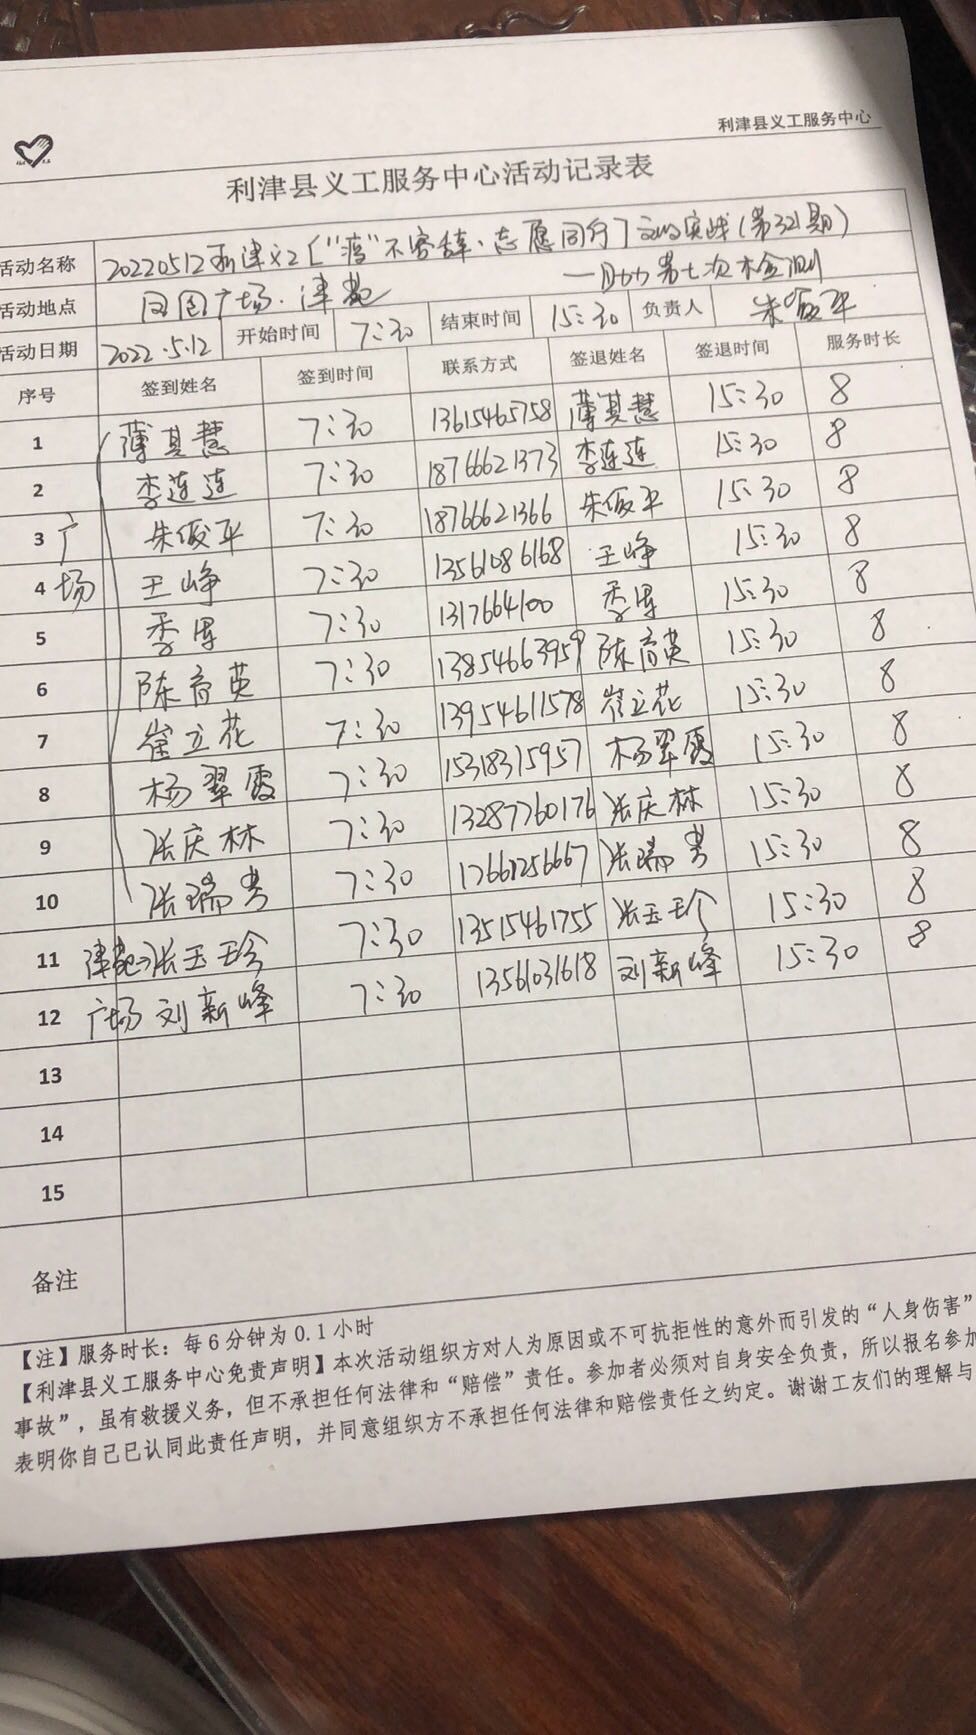 利津县义工服务中心
利津县义工服务中心活动记录表
活动名称 20220512利津义工["疫"不容辞·志愿同行]文明实践(第321期)
—助力第七次检测
活动地点 凤凰广场·津苑
活动日期 2022.5.12 开始时间 7:30 结束时间 15:30 负责人 朱俊平
序号 签到姓名 签到时间 联系方式 签退姓名 签退时间 服务时长
1 薄其慧 7:30 13615465758 薄其慧 15:30 8
2 李连连 7:30 18766621373 李连连 15:30 8
3 广 朱俊平 7:30 18766621366 朱俊平 15:30 8
4 场 王峥 7:30 13561086168 王峥 15:30 8
5 李 7:30 1317664100 李 15:30 8
6 陈育英 7:30 13854663959 陈育英 15:30 8
7 崔立花 7:30 13954611578 崔立花 15:30 8
8 杨翠霞 7:30 15318315957 杨翠霞 15:30 8
9 张庆林 7:30 13287760176 张庆林 15:30 8
10 张瑞 7:30 17661256667 张瑞 15:30 8
11 津苑→张玉珍 7:30 13515461755 张玉珍 15:30 8
12 广场 刘新峰 7:30 13561031618 刘新峰 15:30 8
13
14
15
备注
【注】服务时长：每6分钟为0.1小时
【利津县义工服务中心免责声明】本次活动组织方对人为原因或不可抗拒性的意外而引发的“人身伤害”
事故”，虽有救援义务，但不承担任何法律和“赔偿”责任。参加者必须对自身安全负责，所以报名参加
表明你自己已认同此责任声明，并同意组织方不承担任何法律和赔偿责任之约定。谢谢工友们的理解与